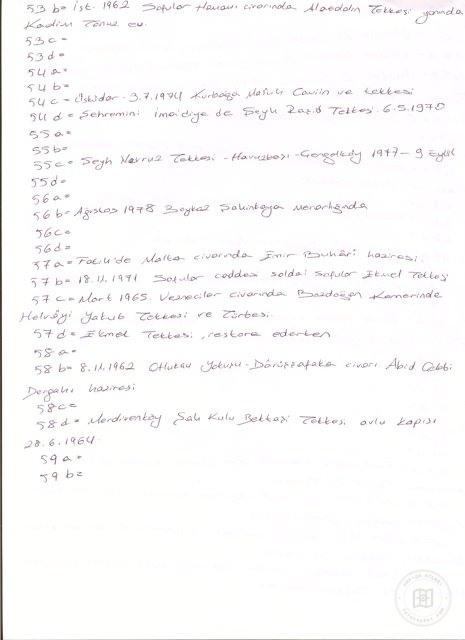 53 b= İst. 1962 Sofular Hamamı civarında Alaeddin Tekkesi yanında
Kadim Tönüz ev.
53 c=
53 d=
54 a=
54 b=
54 c= Üsküdar 3.7.1974 Kurbağa Nafulı Camiin ve tekkesi
54 d= Şehremini İmaidiye de Şeyh Raşid Tekkesi 6.5.1970
55 a=
55 b=
55 c= Şeyh Nevruz Tekkesi - Havuzbaşı - Çengelköy 1977 - 9 Eylül
55 d=
56 a=
56 b= Ağustos 1978 Beykoz Şahinkaya Mezarlığında
56 c=
56 d=
57 a= Fatih'de Malta civarında Emir Buhâri haziresi.
57 b= 18.11.1971 Sofular caddesi soldai sofular Ekmel Tekkesi
57 c= Mart 1965. Vezneciler civarında Bozdoğan Kemerinde
Helvâyi Yakub Tekkesi ve Türbesi.
57 d= Ekmel Tekkesi, restore ederken
58 a=
58 b= 8.11.1962 Otlukcu Yokuşu - Dârüşşafaka civarı Abid Çelebi
Dergahı haziresi
58 c=
58 d= Merdivenköy Şah Kulu Bektaşi Tekkesi avlu kapısı
28.6.1964.
59 a=
59 b=